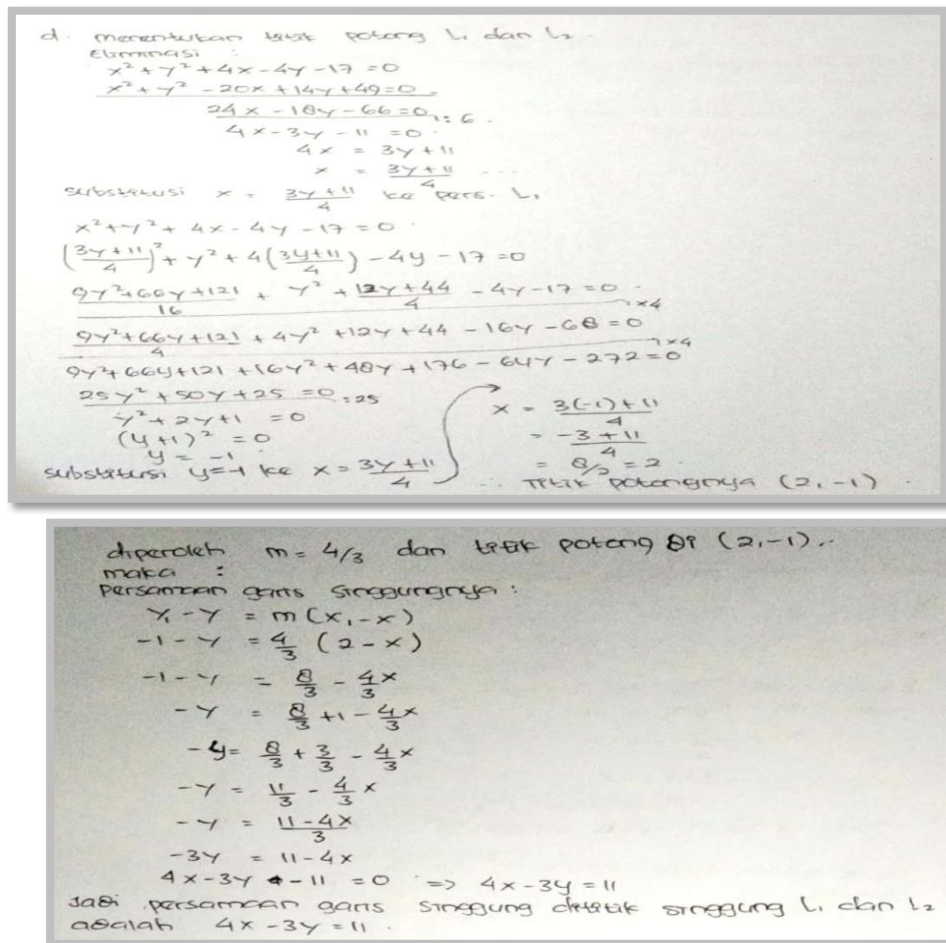 d. menentukan titik potong L₁ dan L₂.
Eliminasi :
x² + y² + 4x - 4y - 17 = 0
x² + y² - 20x + 14y + 49 = 0 -
24x - 18y - 66 = 0 : 6
4x - 3y - 11 = 0
4x = 3y + 11
x = (3y + 11)/4 ...
substitusi x = (3y + 11)/4 ke pers. L₁
x² + y² + 4x - 4y - 17 = 0
((3y + 11)/4)² + y² + 4((3y + 11)/4) - 4y - 17 = 0
(9y² + 66y + 121)/16 + y² + (12y + 44)/4 - 4y - 17 = 0 x4
(9y² + 66y + 121)/4 + 4y² + 12y + 44 - 16y - 68 = 0 x4
9y² + 66y + 121 + 16y² + 48y + 176 - 64y - 272 = 0
25y² + 50y + 25 = 0 : 25
y² + 2y + 1 = 0
(y + 1)² = 0
y = -1
substitusi y = -1 ke x = (3y + 11)/4
x = (3(-1) + 11)/4
= (-3 + 11)/4
= 8/2 = 2
∴ Titik potongnya (2, -1)
diperoleh m = 4/3 dan titik potong di (2, -1)..
maka :
persamaan garis singgungnya :
y₁ - y = m(x₁ - x)
-1 - y = 4/3 (2 - x)
-1 - y = 8/3 - 4/3 x
-y = 8/3 + 1 - 4/3 x
-y = 8/3 + 3/3 - 4/3 x
-y = 11/3 - 4/3 x
-y = (11 - 4x)/3
-3y = 11 - 4x
4x - 3y - 11 = 0 => 4x - 3y = 11
Jadi persamaan garis singgung dititik singgung L₁ dan L₂
adalah 4x - 3y = 11.